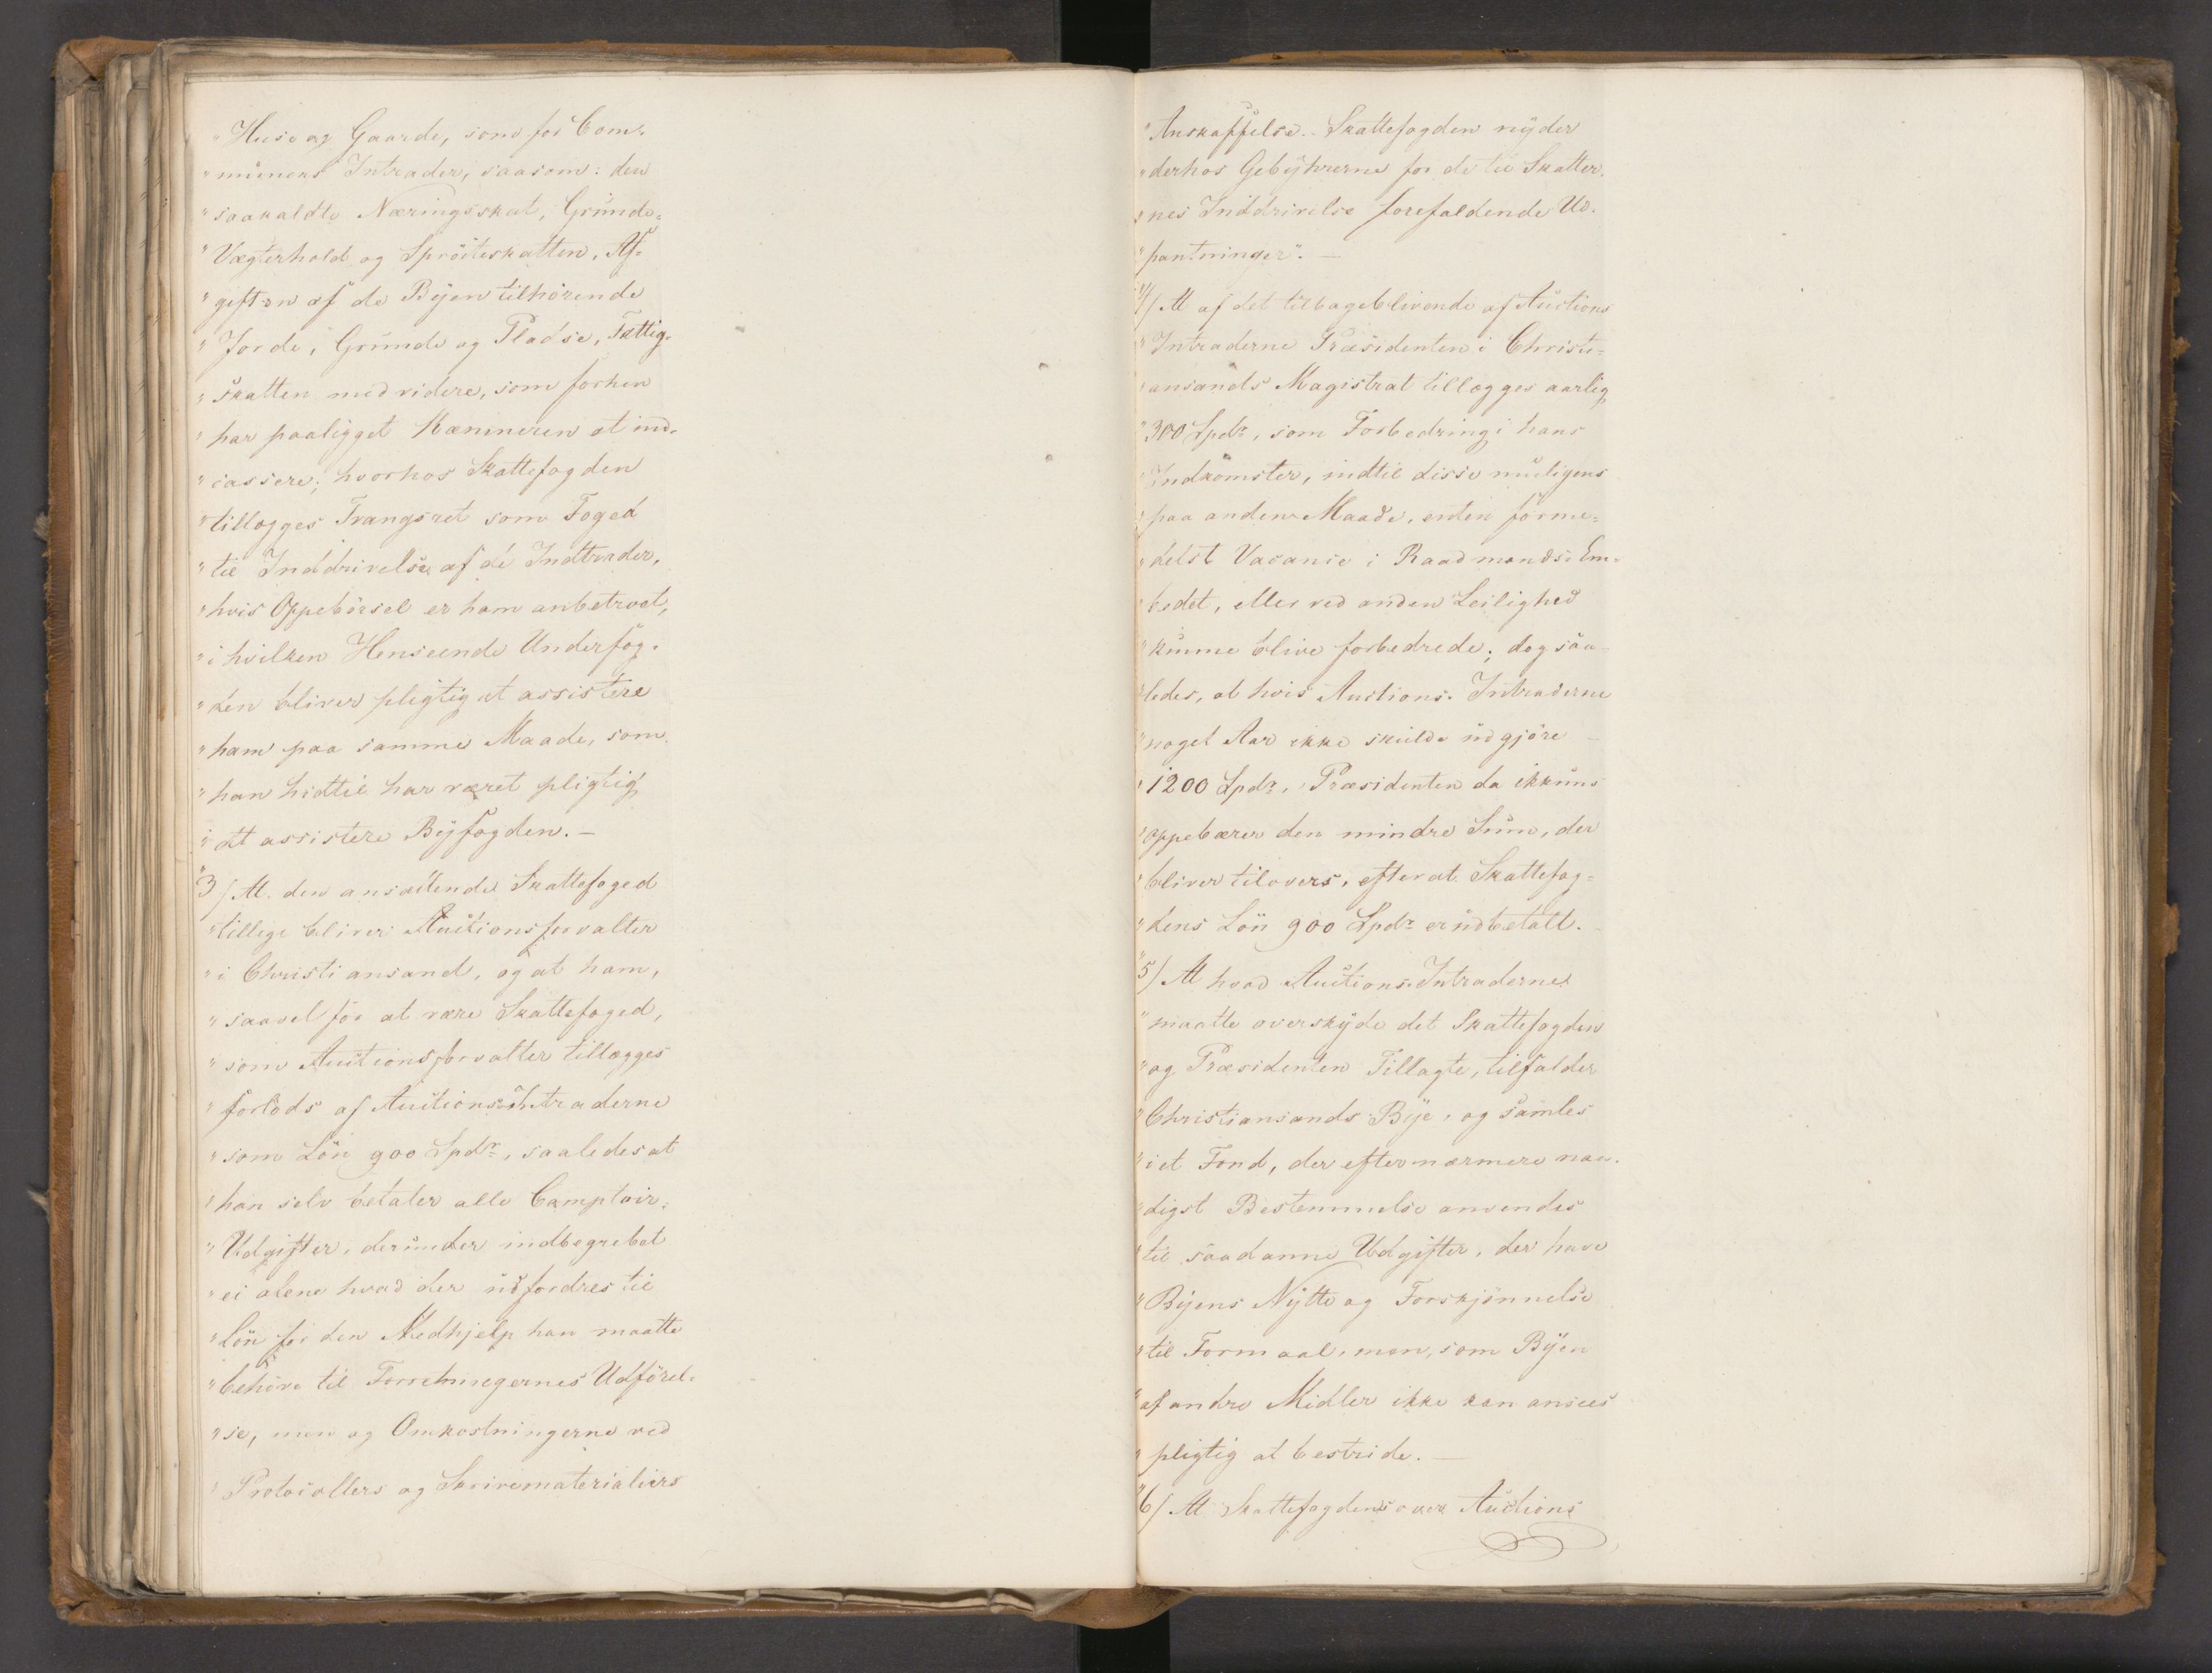 "Huse og Gaarde, som for Com-
"münens Intrader, saasom: den
"saakaldte Næringsskat, Gründe-
"Vægterhold og Spröiteskatten, Af-
"giften af de Byen tilhörende
"Jorde, Gründe og Pladse, Fattig-
"skatten med videre, som forhen
"har paaligget Kæmneren at ind-
"cassere; hvorhos Skattefogden
"tillægges Trangsret som Foged
"til Inddrivelse af de Indtrader,
"hvis Oppebörsel er ham anbetroet,
"i hvilken Henseende Underfog-
"den bliver pligtig at assistere
"ham paa samme Maade, som
"han hidtil har været pligtig
"at assistere Byfogden. —
"3/ At den ansættende Skattefoged
"tillige bliver Auctionsforvalter
"i Christiansand, og at ham,
"saavel for at være Skattefoged,
"som Auctionsforvalter tillægges
"forlods af Auctionsintraderne
"som Lön 900 Spdr, saaledes at
"han selv betaler alle Comptoir-
"Udgifter, deründer indbegrebet
"ei alene hvad der üdfordres til
"Lön for den Medhjelp han maatte
"behöve til Forretningernes Udförel-
"se, men og Omkostningerne ved
"Protocollers og Skrivematerialiers
"Anskaffelse. Skattefogden nyder
"derhos Gebyhrerne for de til Skatter-
"nes Inddrivelse forefaldende Ud-
"pantninger". —
"4/ At af det tilbageblivende af Auctions
"Intraderne Præsidenten i Christi-
"ansands Magistrat tillægges aarlig
"300 Spdr, som Forbedring i hans
"Indkomster, indtil disse müligens
"paa anden Maade, enten forme-
"delst Vacance i Raadmands-Em-
"bedet, eller ved anden Leilighed
"künne blive forbedrede; dog saa-
"ledes, at hvis Auctions-Intraderne
"noget Aar ikke skülde üdgjöre
"1200 Spdr, Præsidenten da ikküns
"oppebærer den mindre Süm, der
"bliver tilovers, efter at Skattefog-
"dens Lön 900 Spdr er üdbetalt.
"5/ At hvad Auctions-Intraderne
"maatte overskyde det Skattefogden
"og Præsidenten Tillagte, tilfalder
"Christiansands Bye, og samles
"i et Fond, der efter nærmere naa-
"digst Bestemmelse anvendes
"til saadanne Udgifter, der have
"Byens Nytte og Forskjönnelse
"til Formaal, men, som Byen
"af andre Midler ikke kan ansees
"pligtig at bestride. —
"6/ At Skattefogden over Auctions